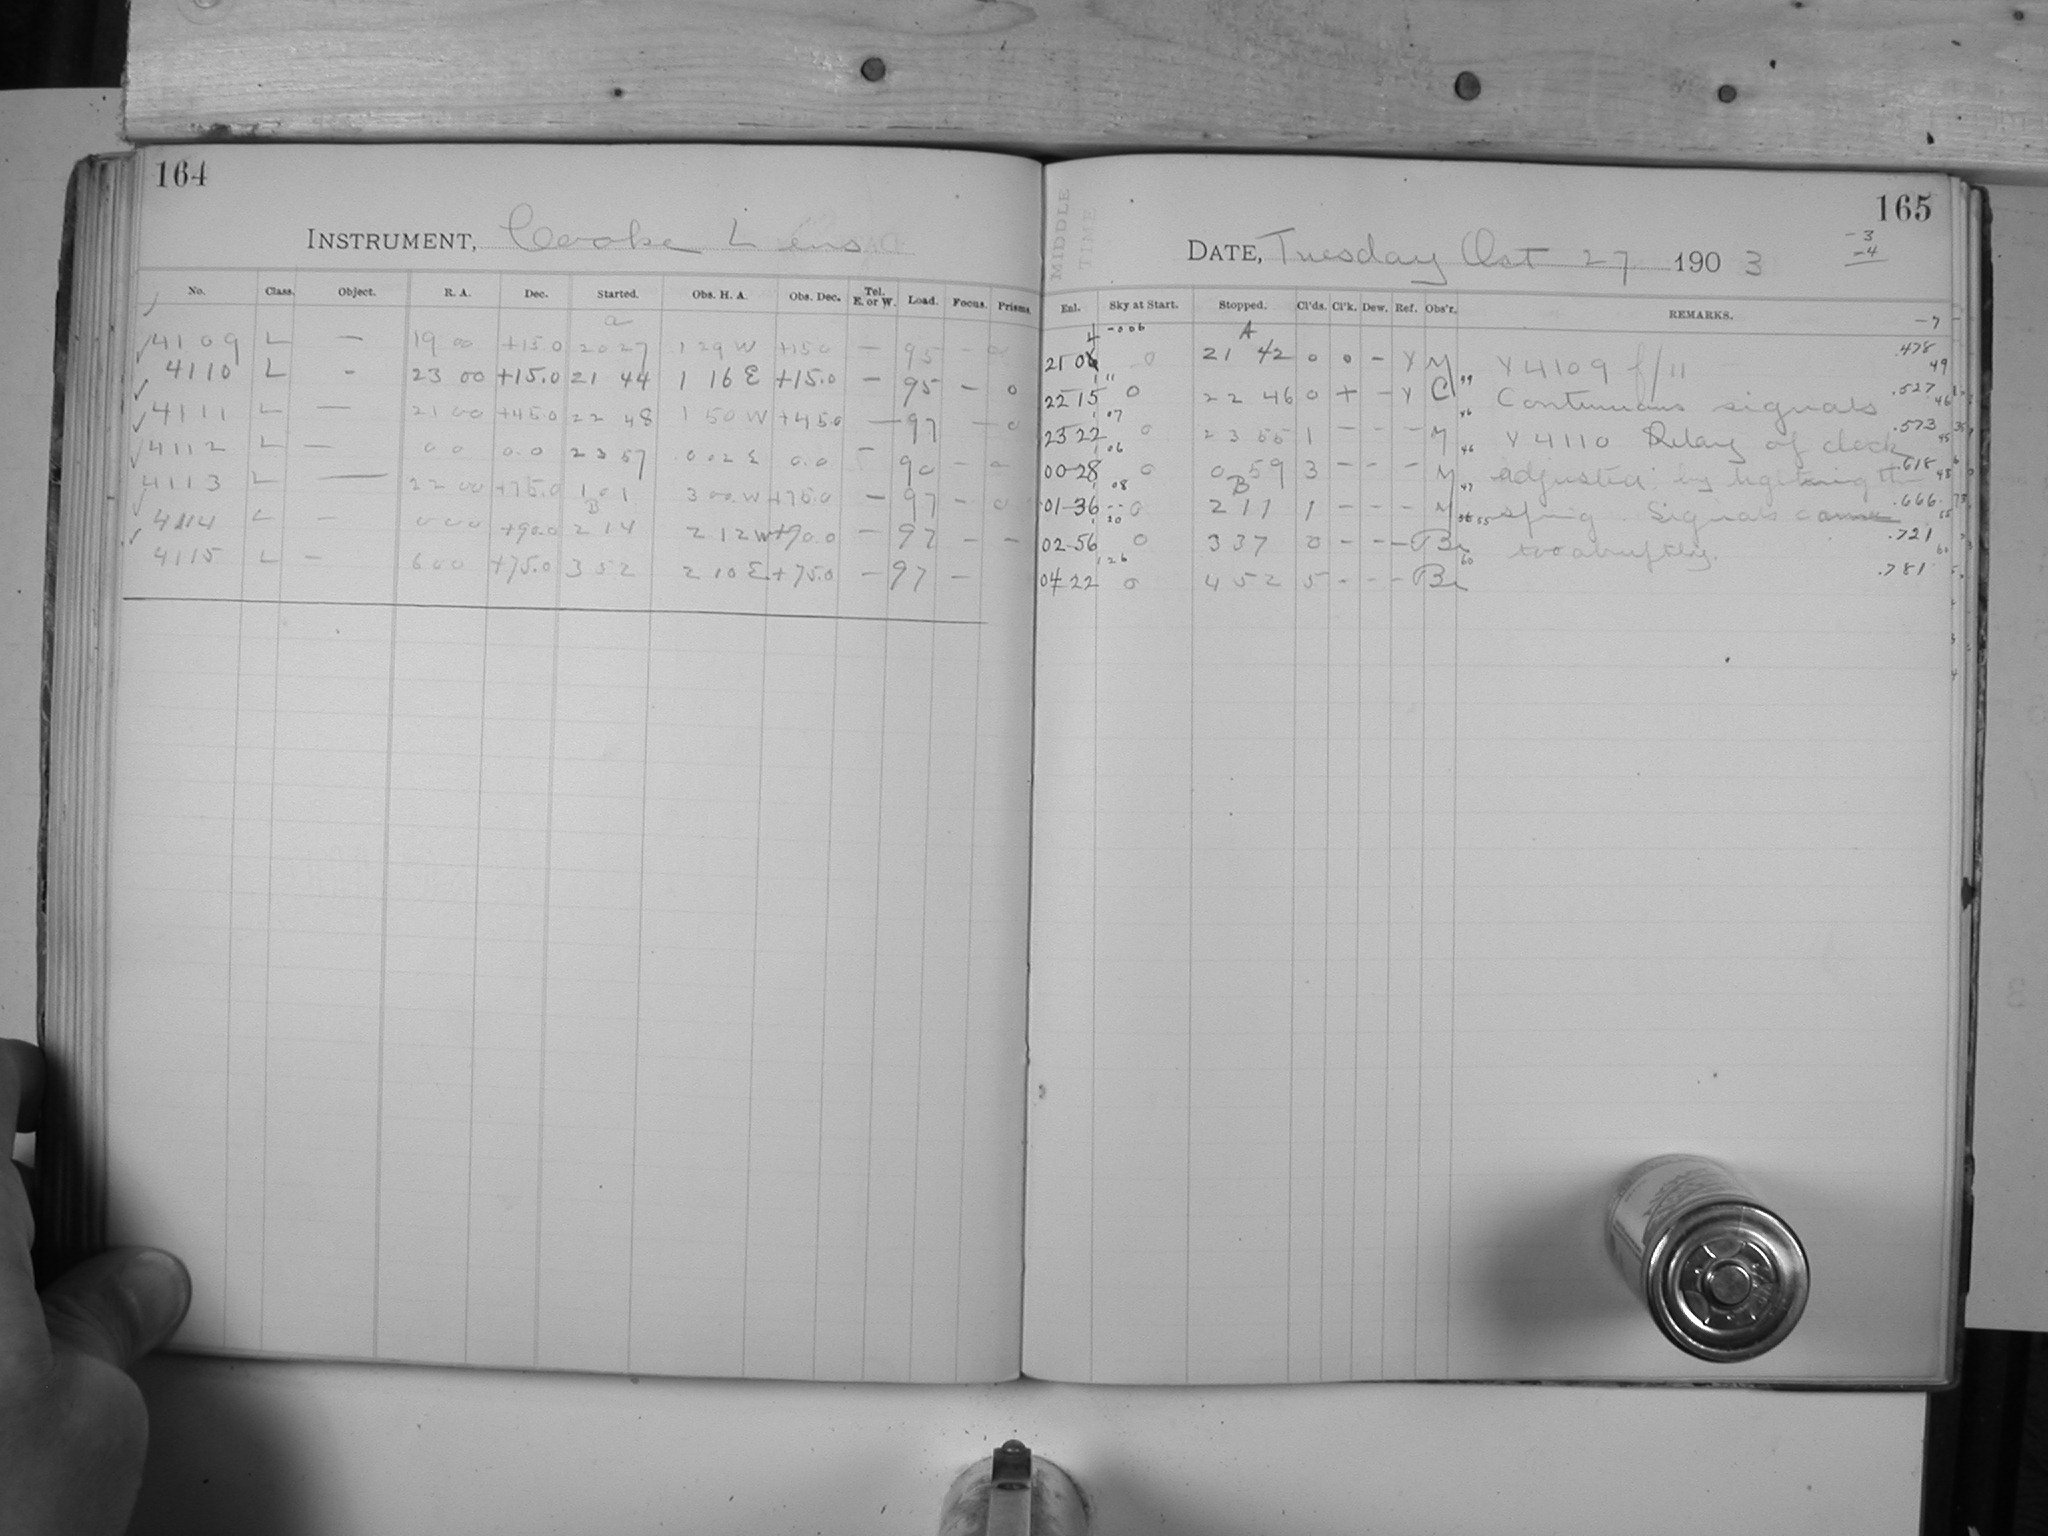 164
INSTRUMENT, Cooke Lens
No. Class. Object. R. A. Dec. Started. Obs. H. A. Obs. Dec. Tel. E. or W. Load. Focus. Prisms.
a
4109 L — 19 00 +15.0 20 27 1 29 W +15.0 — 95 – o
4110 L - 23 00 +15.0 21 44 1 16 E +15.0 — 95 – o
4111 L — 21 00 +45.0 22 48 1 50 W +45.0 — 97 – o
4112 L — 0 0 0.0 23 57 0 02 E 0.0 – 90 – o
4113 L — 22 00 +75.0 1 01 3 00 W +75.0 – 97 – o
B
4114 L – 0 00 +90.0 2 14 2 12 W +90.0 – 97 – –
4115 L – 6 00 +75.0 3 52 2 10 E +75.0 – 97 –
165
MIDDLE
TIME
DATE, Tuesday Oct 27 1903
-3
-4
Enl. Sky at Start. Stopped. Cl'ds. Cl'k. Dew. Ref. Obs'r. REMARKS.
-7
4 -006 A .478
21 0 21 42 o o – Y M Y 4109 f/11 49
22 15 0 22 46 0 + – Y C Continuous signals .527 46
23 22 0 23 55 1 – – – M Y 4110 Relay of clock .573 45
00-28 0 0 59 3 – – – M adjusted by tightening the .618 48
B
01-36 0 2 11 1 – – – M spring. Signals came .666 55
02-56 0 3 37 0 – – – Br too abruptly. .721 60
04 22 0 4 52 5 – – – Br .781